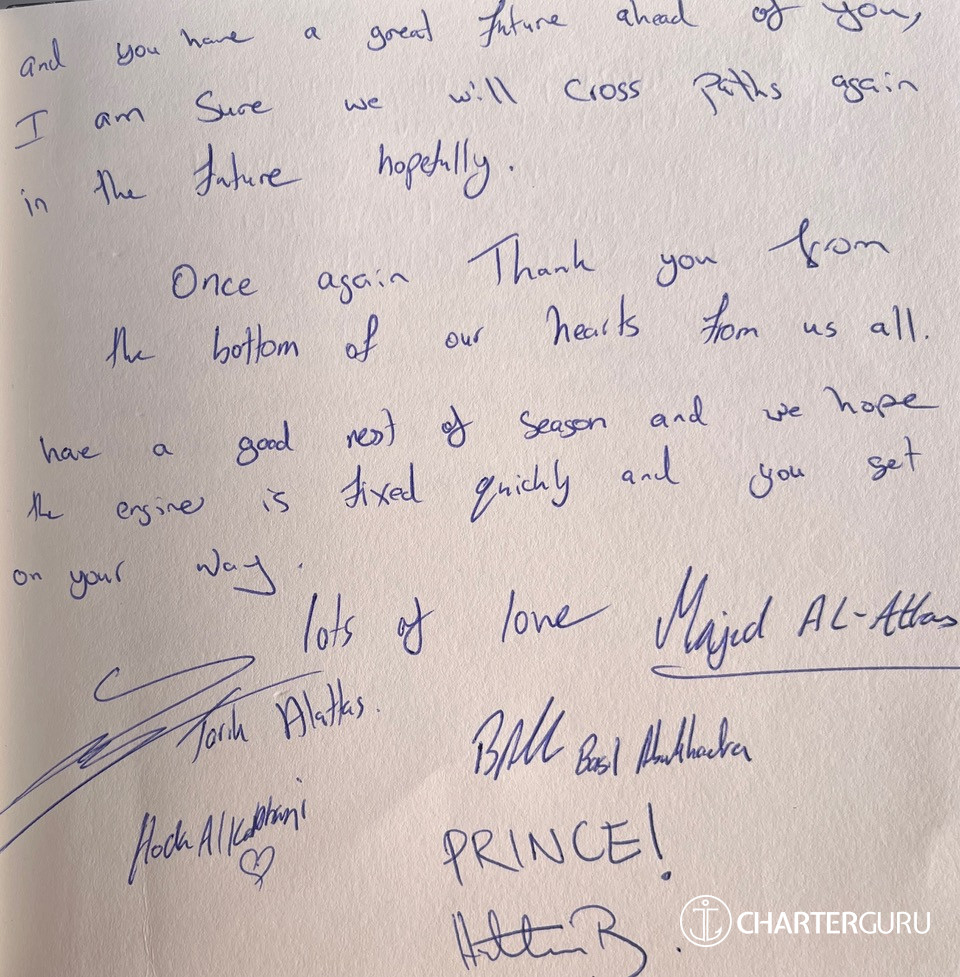 and you have a great future ahead of you,
I am Sure we will cross paths again
in the future hopefully.
Once again Thank you from
the bottom of our hearts from us all.
have a good rest of season and we hope
the engine is fixed quickly and you get
on your way.
lots of love Majed AL-Attas
Tarik Alattas.
Basil
PRINCE!
CHARTERGURU